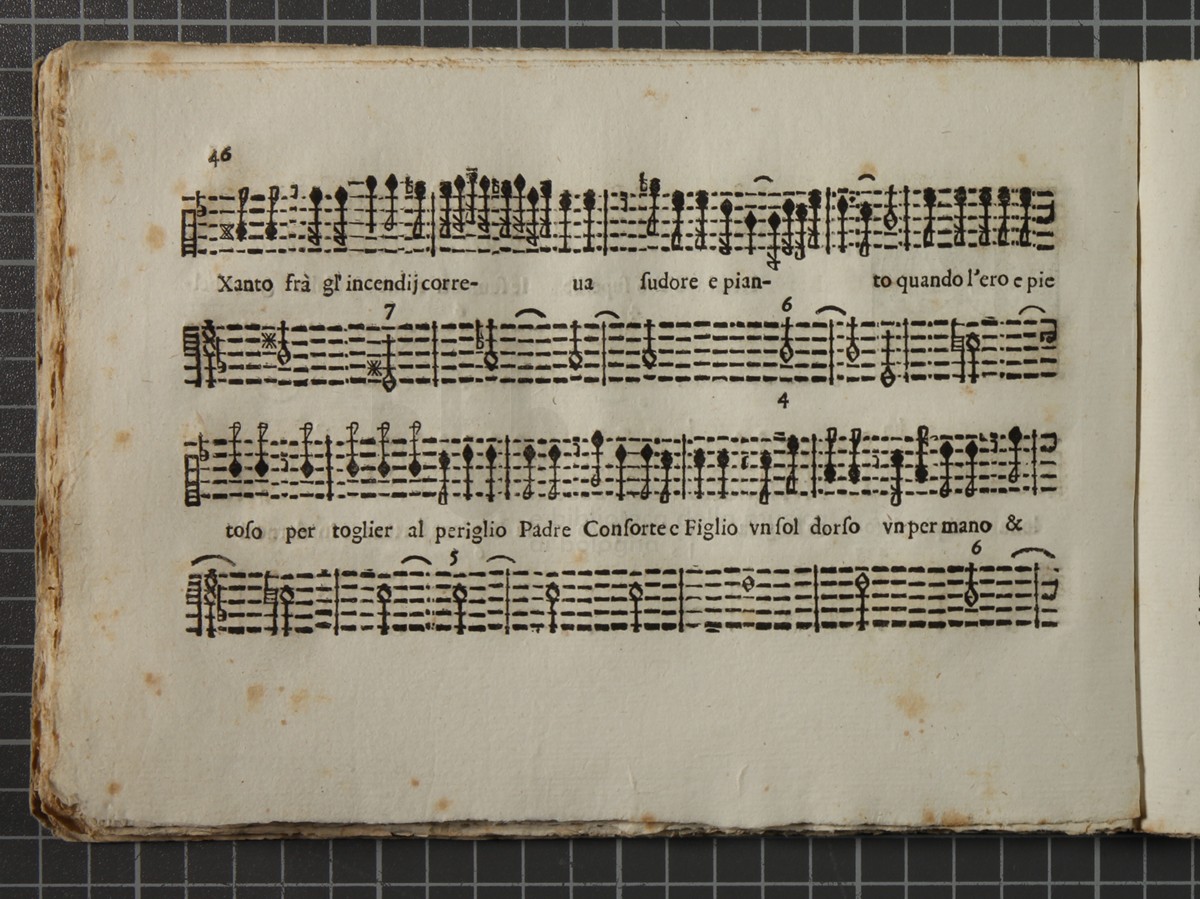 46
Xanto frà gl' incendij corre- ua ſudore e pian- to quando l'ero e pie
7 6
4
toſo per toglier al periglio Padre Conſorte e Figlio vn ſol dorſo vn per mano &
5 6